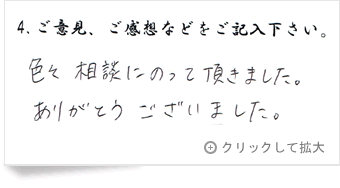 4. ご意見、ご感想などをご記入下さい。
色々 相談にのって頂きました。
ありがとう ございました。
クリックして拡大